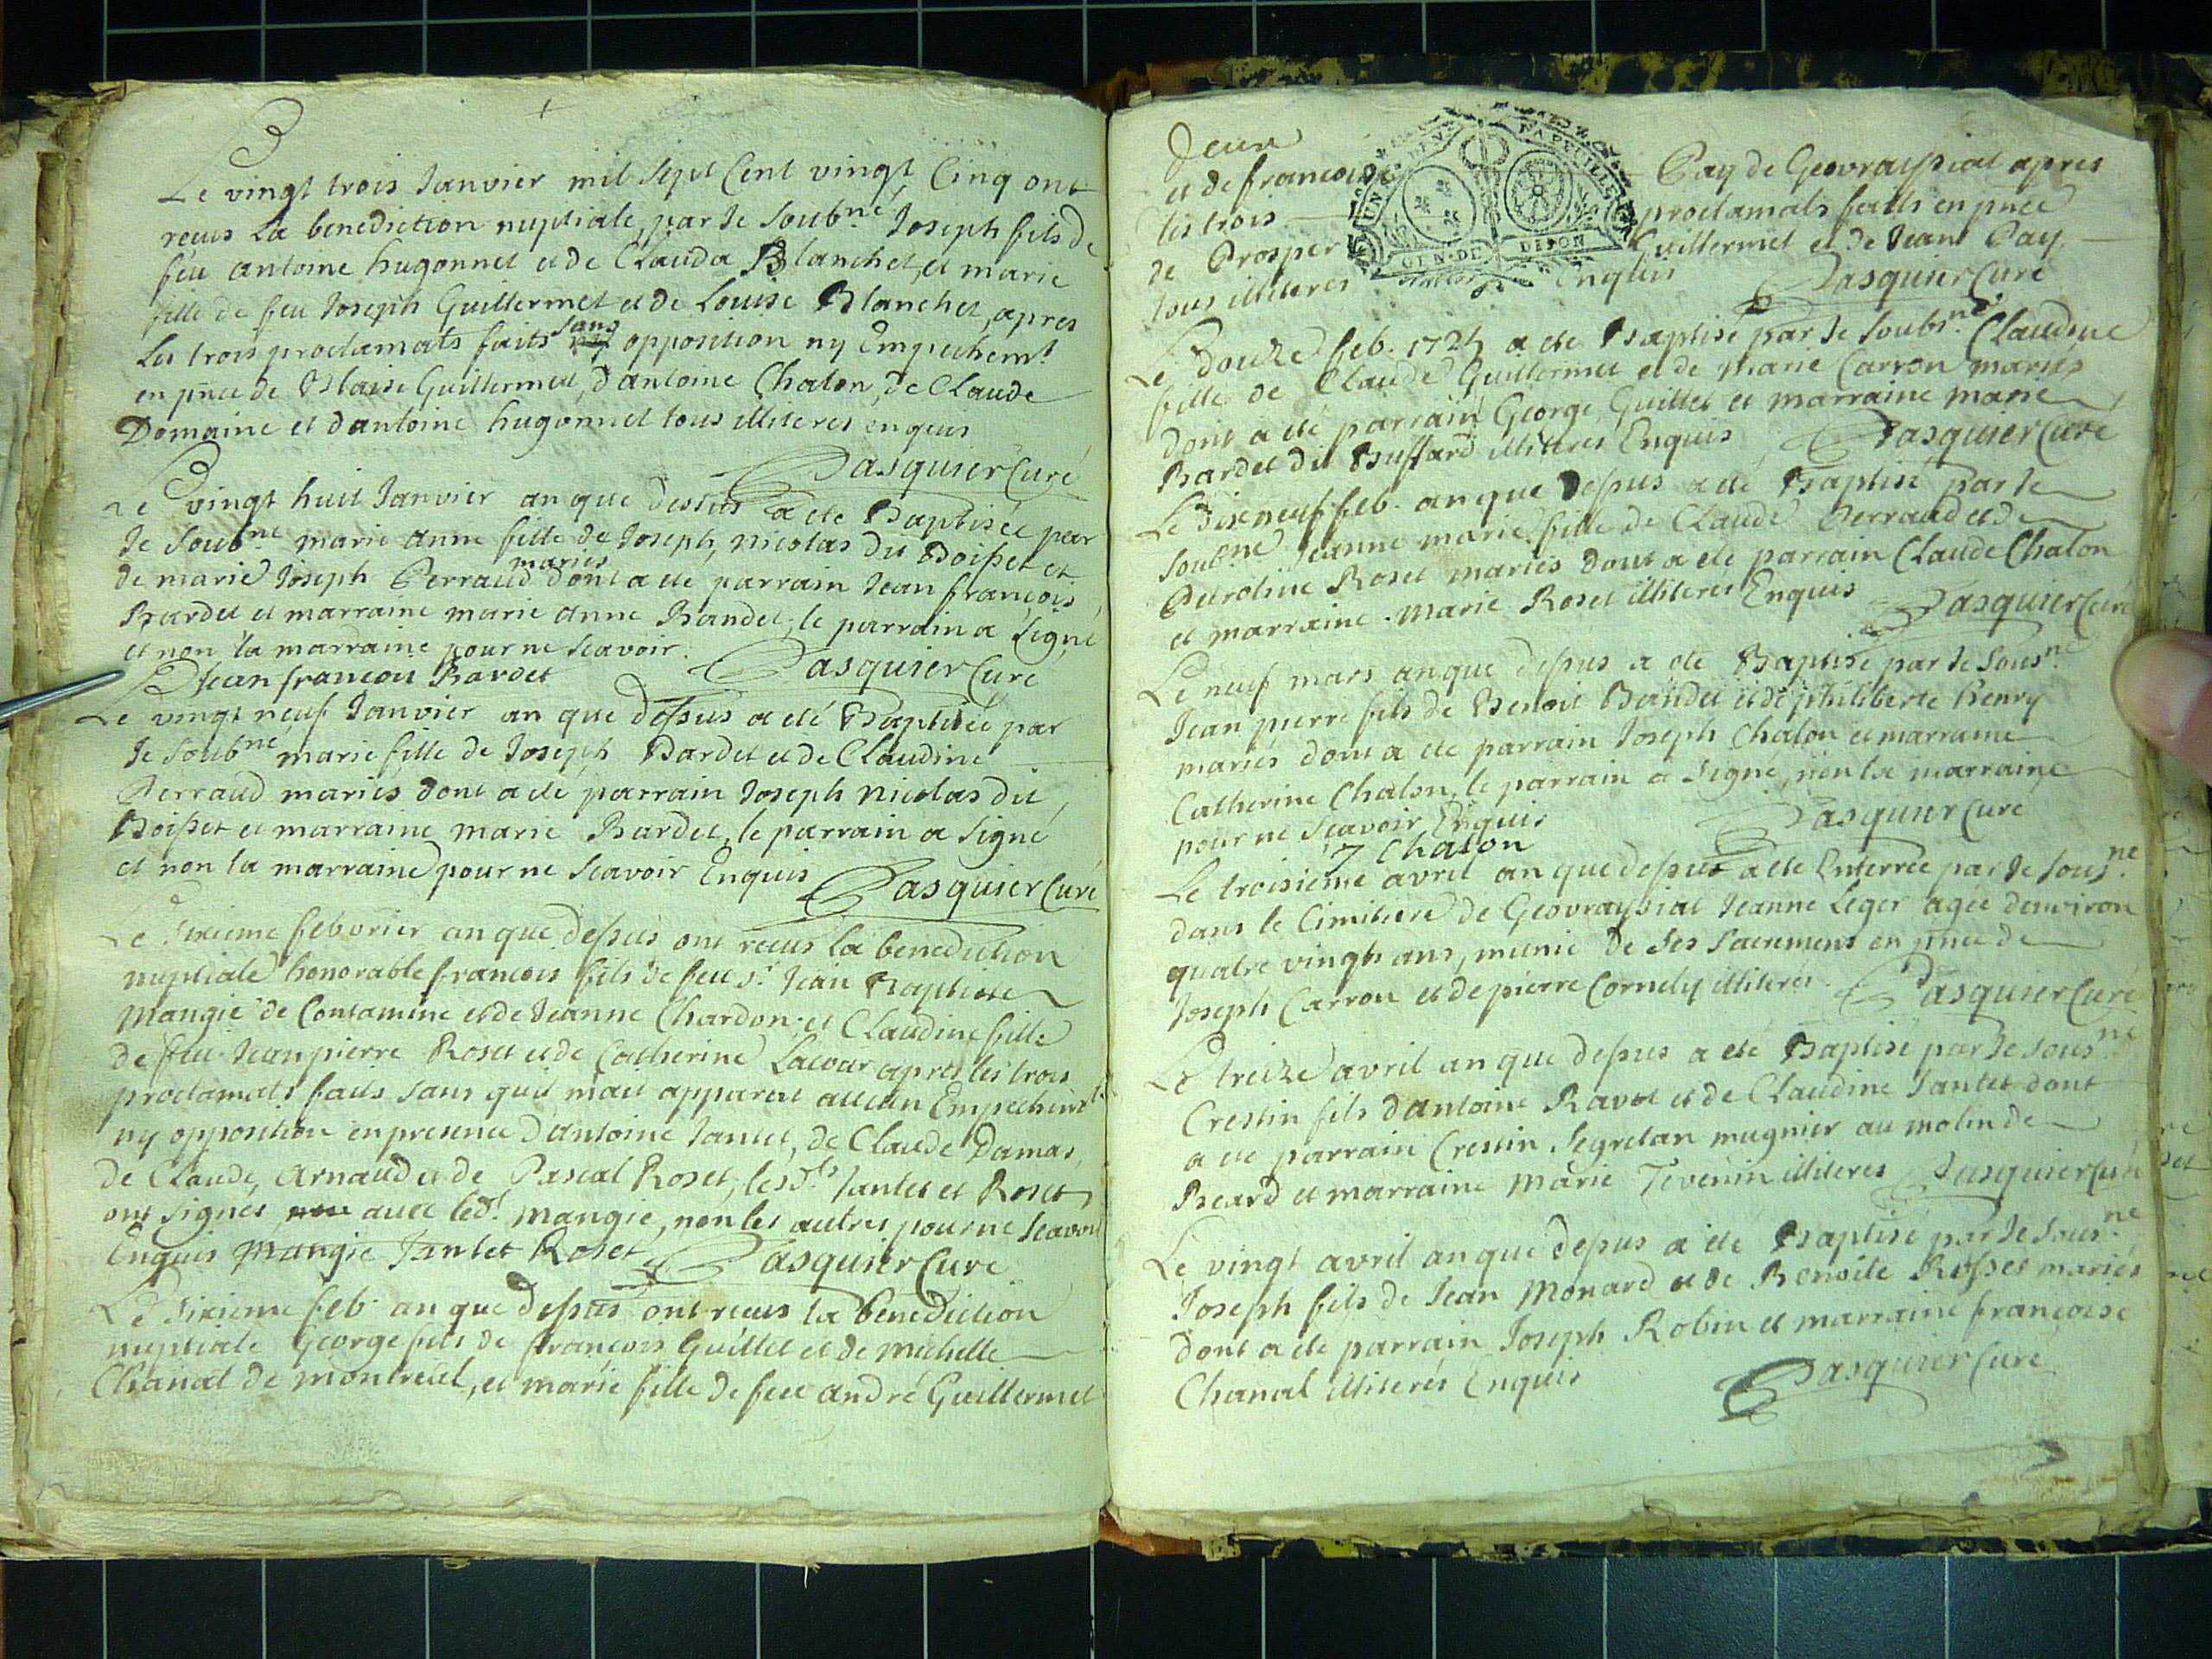 Le vingt trois Janvier mil sept Cent vingt Cinq ont
recus La benediction nuptiale, par Je Soub.né Joseph fils de
feu antoine hugonnet et de Clauda Blanchet, et marie
fille de feu Joseph Guillermet et de Louise Blanchet, apres
Les trois proclamats faits sans opposition ny Empechemt
en pnce de Blaise Guillermet, d'antoine Chalon, de Claude
Domaine et d'antoine hugonnet tous illiteres enquis
Pasquier Curé
Le vingt huit Janvier an que dessus a ete Baptisée par
Je Soub.né marie anne fille de Joseph, nicolas dit Boisset et
de marie Joseph Perraud mariés dont a ete parrain Jean francois
Bardet et marraine marie anne Bandet, le parrain a signé
et non la marraine pour ne scavoir.
Jean francois Bardet Pasquier Curé
Le vingt neuf Janvier an que dessus a eté Baptisée par
Je Soubné marie fille de Joseph Bardet et de Claudine
Perraud mariés dont a ete parrain Joseph nicolas dit
Boisset et marraine marie Bardet, le parrain a signé
et non la marraine pour ne scavoir Enquis
Pasquier Curé
Le sixieme febvrier an que dessus ont recus la benediction
nuptiale honorable francois fils de feu sr. Jean Baptiste
Mangié de Contamine et de Jeanne Chardon, et Claudine fille
de feu Jean pierre Roset et de Catherine Lacour apres les trois
proclamats faits sans quil mait apparent aucun Empechemt.
ny opposition en presence d'antoine Jantet, de Claude Damas,
de Claude Arnaud et de Pascal Roset, lesdts Jantet et Roset
ont signés avec led. Mangié, non les autres pour ne scavoir
Enquis Mangie Jantet Roset Pasquier Curé
Le sixieme feb. an que dessus ont recus la benediction
nuptiale George fils de francois Guillet et de michelle
Chanal de montreul, et marie fille de feu andré Guillermet
et de francoise Pay de Geovrayssiat apres
les trois proclamats faits en pnce
de Prosper Guillermet et de Jean Pay
tous illiteres Enquis Pasquier Curé
GEN. DE DIJON
Le Douze feb. 1725 a ete Baptisé par Je Soubs.né Claudine
fille de Claude Guillermet et de Marie Carron mariés
dont a eté parrain George Guillet et marraine marie
Bardet dit Buffard illiteres Enquis Pasquier Curé
Le dixneuf feb. an que dessus a eté Baptisé par Je
Soub.né Jeanne marie fille de Claude Perraud et de
Peroline Roset mariés dont a ete parrain Claude Chalon
et marraine marie Roset illiteres Enquis Pasquier Curé
Le neuf mars an que dessus a ete Baptisé par Je Sousné
Jean pierre fils de Benoit Bandet et de philiberte henry
mariés dont a ete parrain Joseph Chalon et marraine
Catherine Chalon, le parrain a signé, non la marraine
pour ne scavoir Enquis Pasquier Curé
J Chalon
Le troisieme avril an que dessus a ete Enterree par Je Sousné
dans le Cimitiere de Geovrayssiat Jeanne Leger agée denviron
quatre vingts ans, munie de ses sacremens en pnce de
Joseph Carron et de pierre Cornely illiteres. Pasquier Curé
Le treize avril an que dessus a eté Baptisé par Je Sousné
Crestin fils d'antoine Ravot et de Claudine Jantet dont
a ete parrain Crestin Segretan mugnier au molin de
Beard et marraine Marie Tevenin illiteres Pasquier Curé
Le vingt avril an que dessus a eté Baptisé par Je Sousné
Joseph fils de Jean Monard et de Benoite Rosset mariés
dont a ete parrain Joseph Robin et marraine francoise
Chanal illiterés Enquis Pasquier Curé